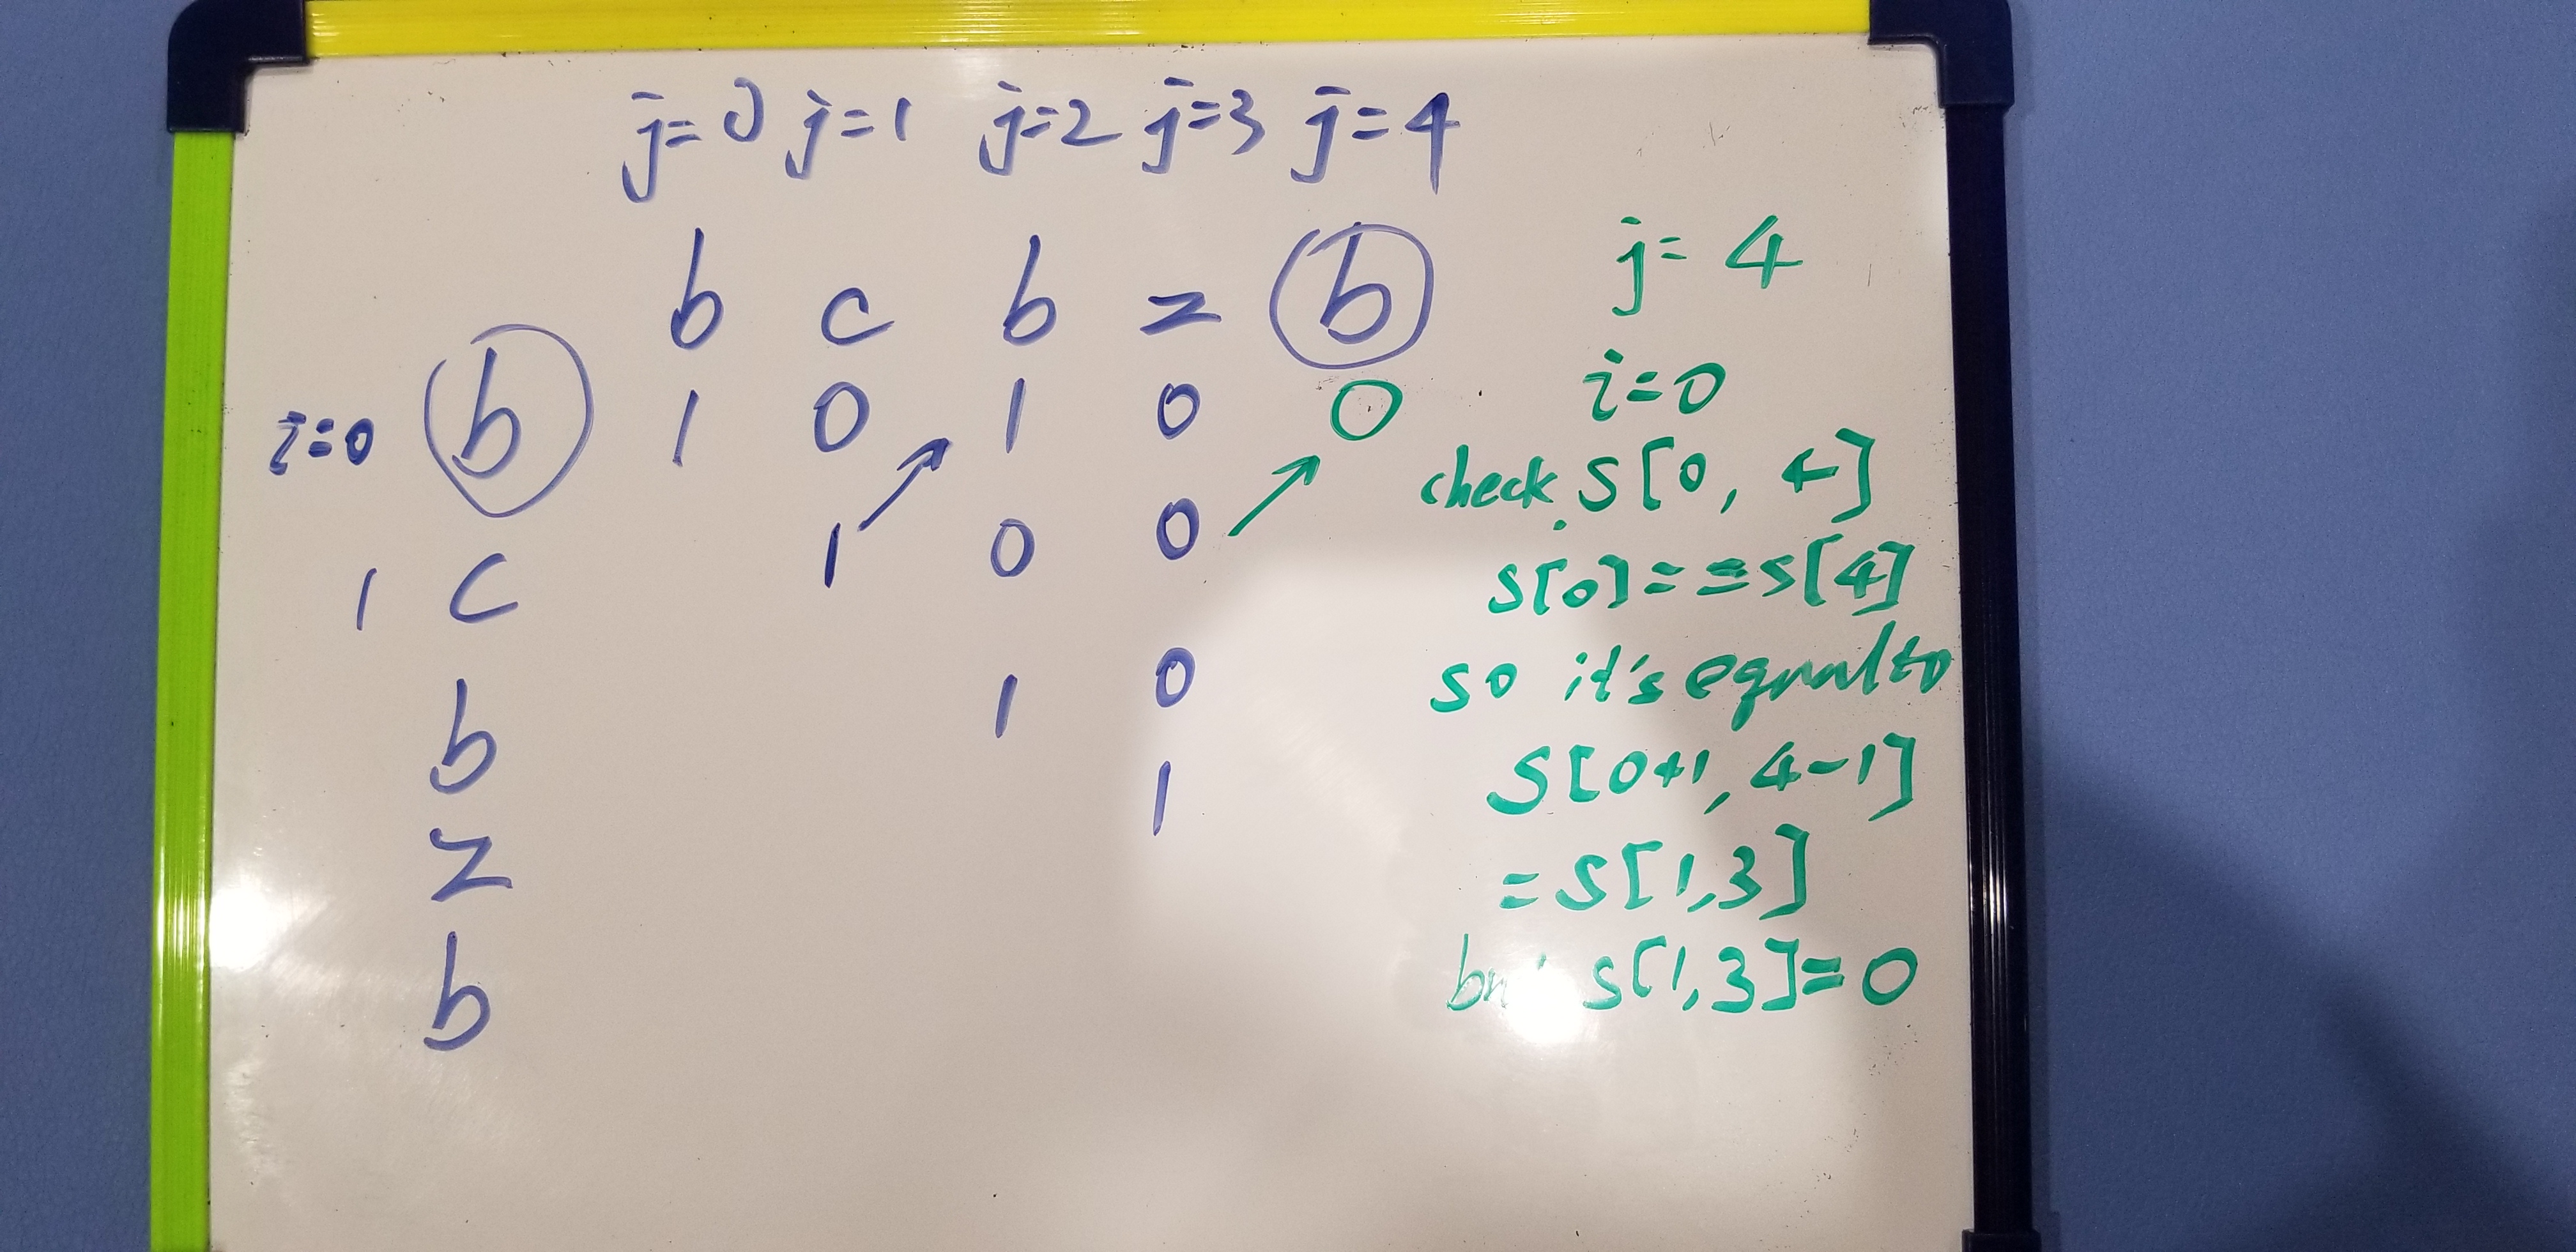 j=0 j=1 j=2 j=3 j=4
b c b z b
i=0 b 1 0 1 0 0
1 c 1 0 0
b 1 0
z 1
b
j=4
i=0
check S[0, 4]
S[0]==S[4]
so it's equal to
S[0+1, 4-1]
=S[1,3]
S[1,3]=0